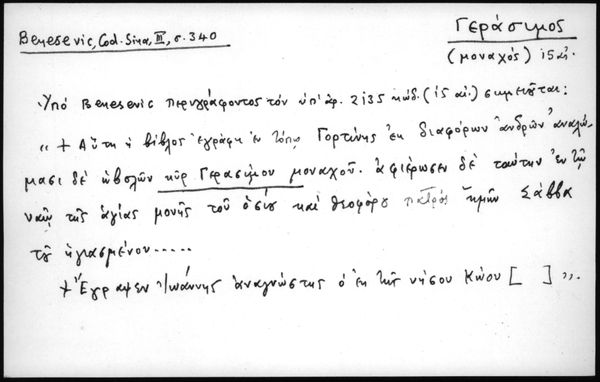 Benesevic, Cod. Sina, III, σ. 340
Γεράσιμος
(μοναχός) ις αἰ.
Ὑπό Benesevic περιγράφοντος τόν ὑπ' ἀρ. 2135 κώδ. (ις αἰ.) σημειοῦται:
"+ Αὕτη ἡ βίβλος ἐγράφη ἐν τόπῳ Γορτύνης ἐκ διαφόρων ἀνδρῶν ἀναλώ-
μασι δέ ὠβολῶν κῦρ Γερασίμου μοναχοῦ. ἀφιέρωσεν δέ ταύτην ἐν τῷ
ναῷ τῆς ἁγίας μονῆς τοῦ ὁσίου καί θεοφόρου πατρός ἡμῶν Σάββα
τοῦ ἡγιασμένου.....
+ Ἔγραψεν Ἰωάννης ἀναγνώστης ὁ ἐκ τῆς νήσου Κώου [ ]".